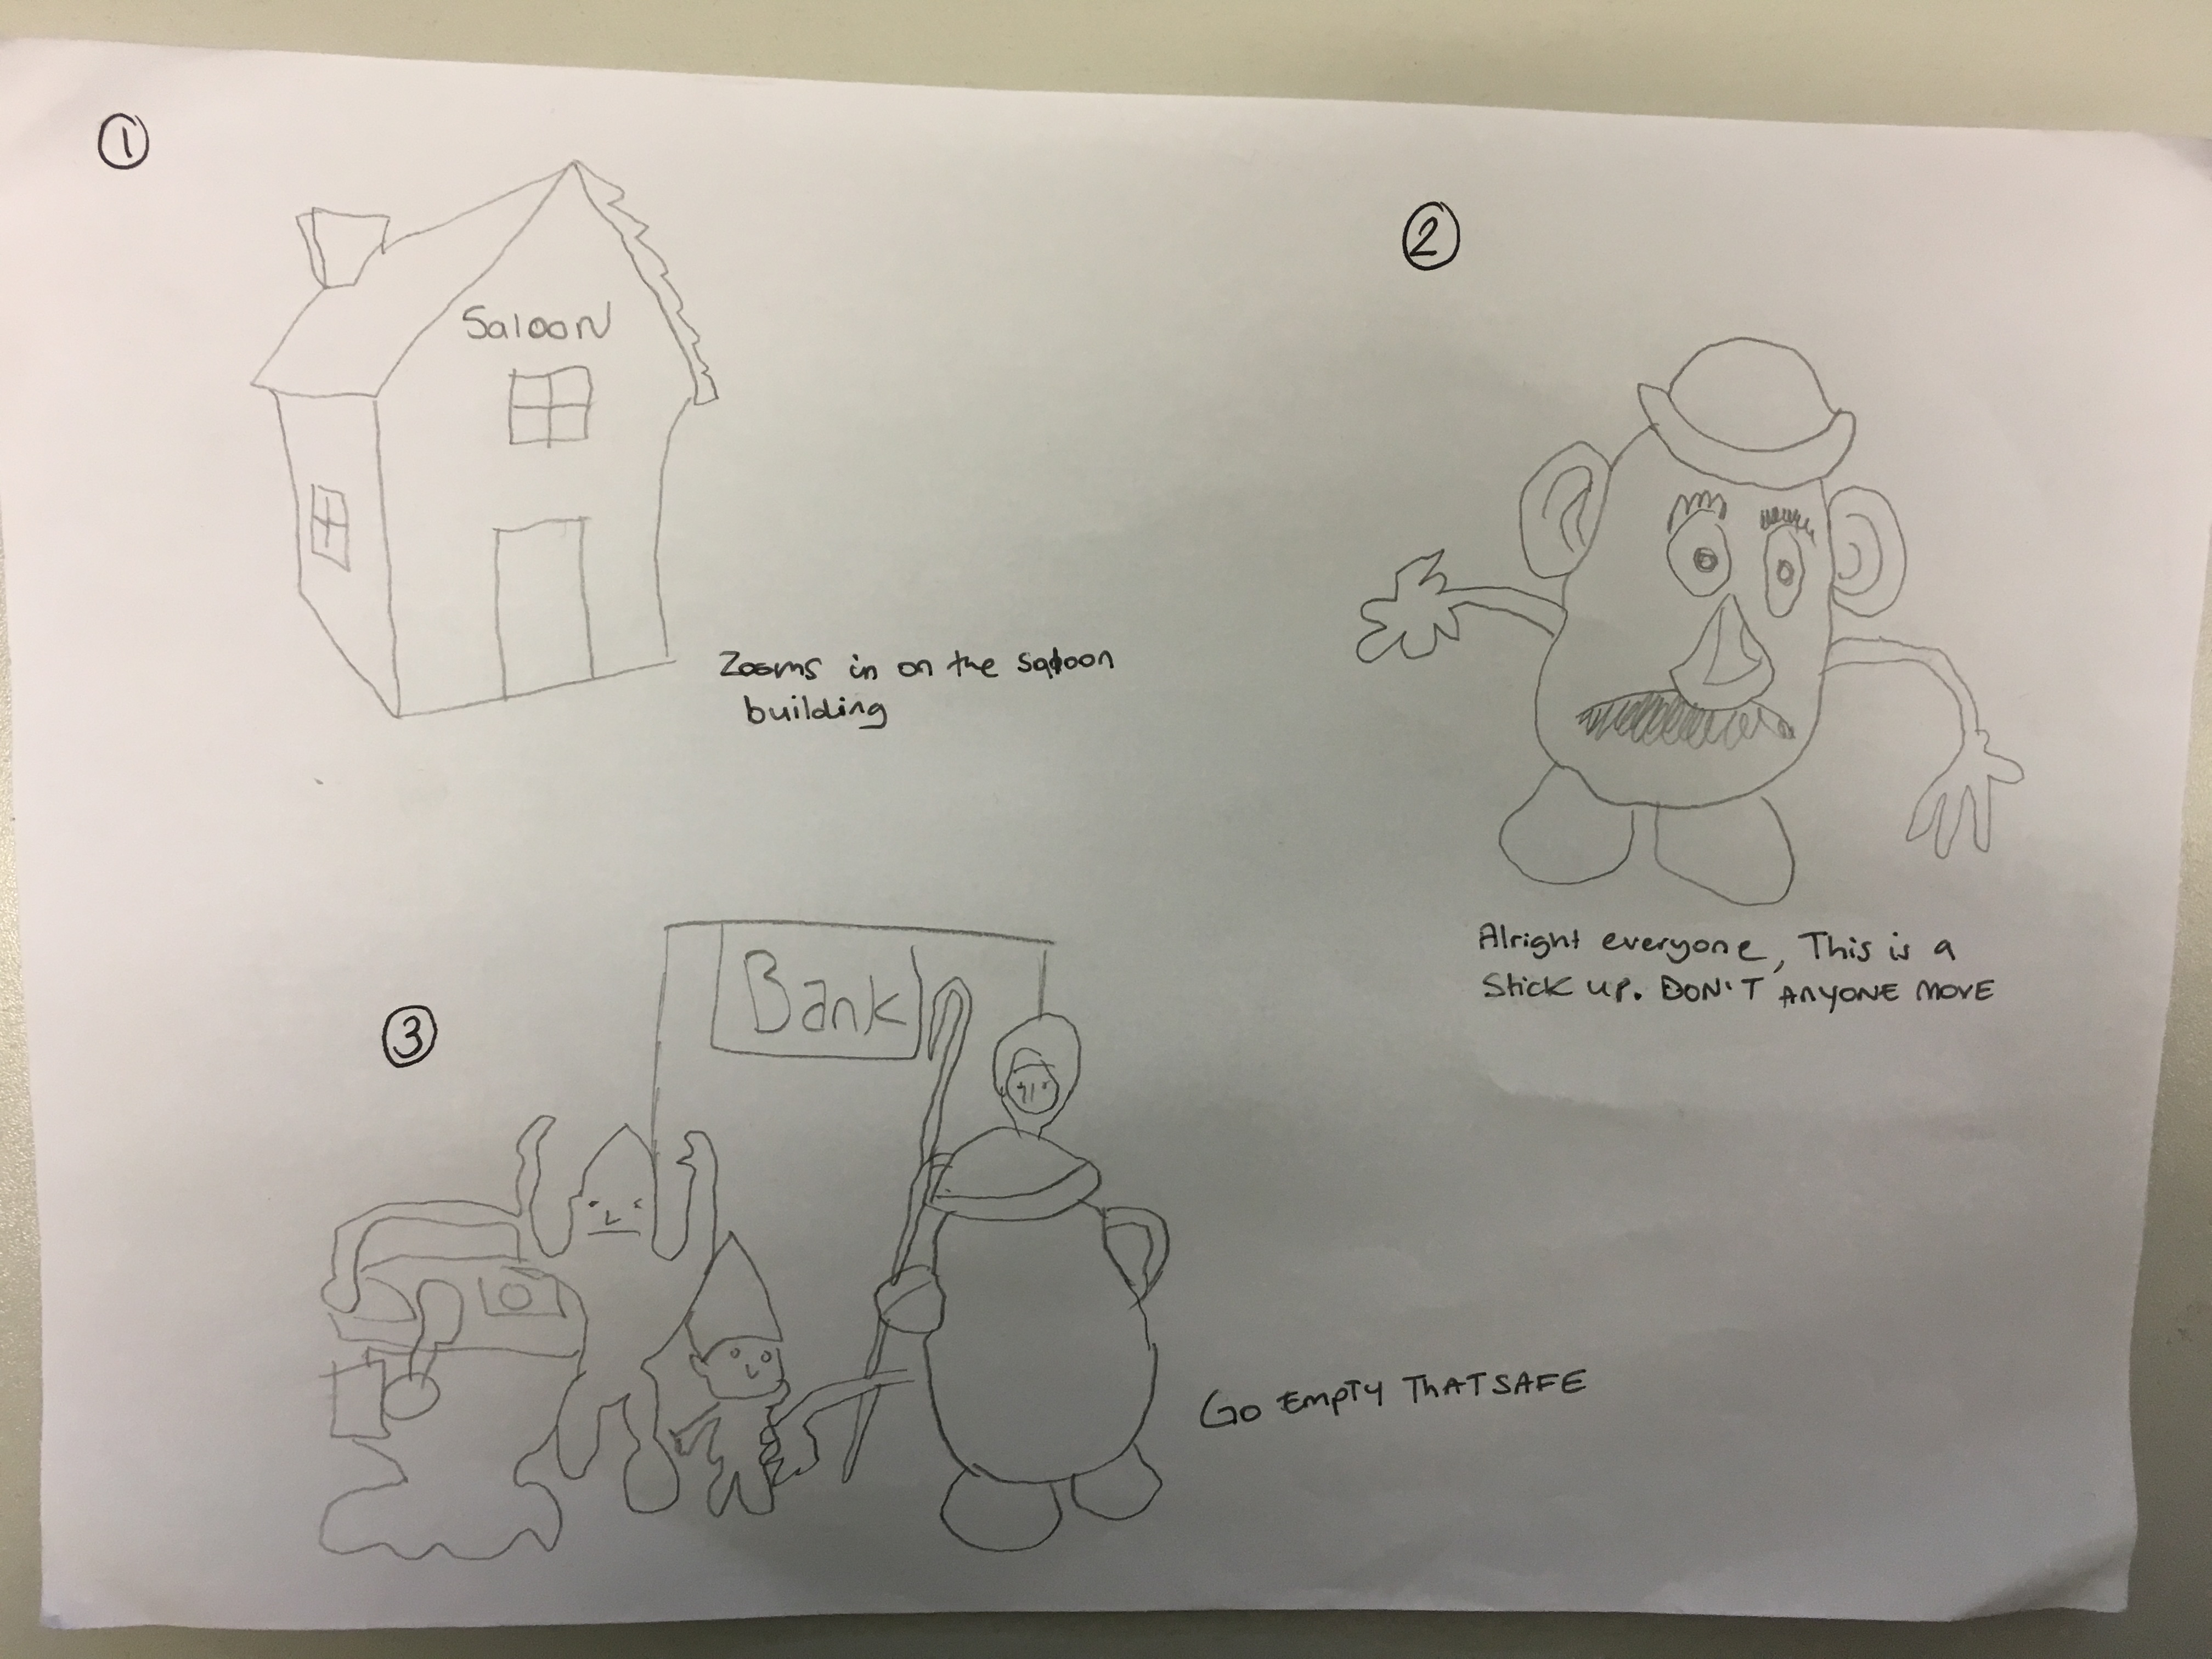 ①
Saloon
Zooms in on the saloon
building
②
Alright everyone, This is a
Stick up. DON'T ANYONE MOVE
③
Bank
GO EMPTY THAT SAFE